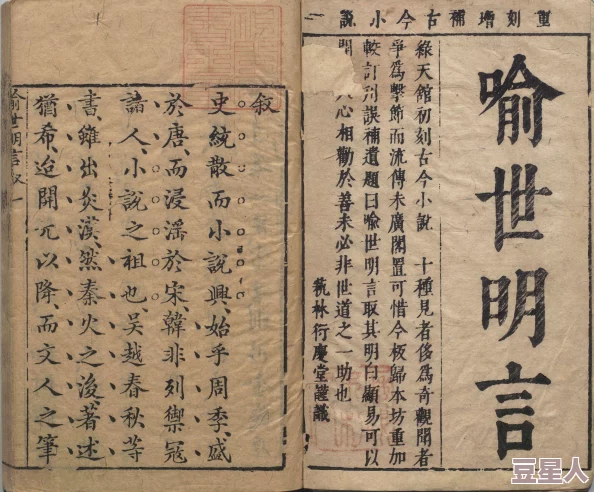 重刻增補古今小說
喻世明言
綠天館初刻古今小說 十種見者侈爲奇觀聞者
爭爲擊節而流傳未廣閣置可惜今板歸本坊重加
較訂刊誤補遺題曰喻世明言取其明白顯易可以
開 人心相勸於善未必非世道之一助也
藝林衍慶堂謹識
敘
史統散而小說興始乎周季盛
於唐而浸淫於宋韓非列禦冦
諸人小說之祖也吳越春秋等
書雖出炎漢然秦火之後著述
猶希迨開元以降而文人之筆
喻世明言 叙 一
豆星人